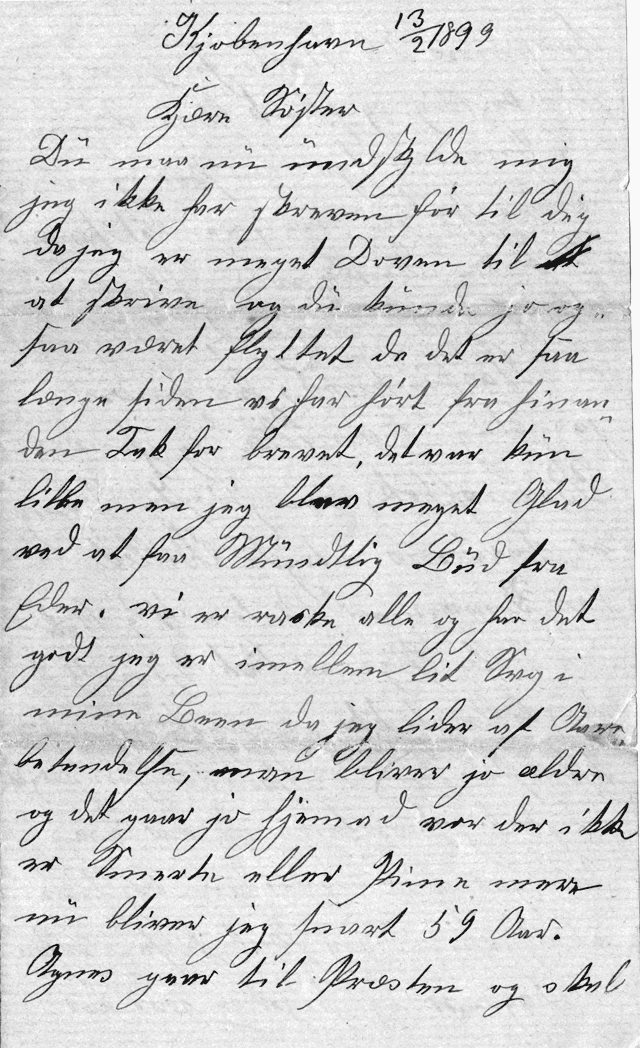 Kjøbenhavn 13/2 1899
Kjære Søster
Du maa nu undskylde mig
jeg ikke har skreven før til dig
da jeg er meget Doven til
at skrive og du kunde jo og-
saa været flyttet da det er saa
længe siden vi har hørt fra hinan-
den Tak for brevet, det var kun
lille men jeg blev meget Glad
ved at faa Mündtlig Bud fra
Eder. vi er raske alle og har det
godt jeg er imellem lit Syg i
mine Been da jeg lider af Aare
betendelse, man bliver jo ældre
og det gaar jo hjemad vor der ikke
er Smerte eller Pine mere
nu bliver jeg snart 59 Aar.
Agnes gaar til Præsten og skal